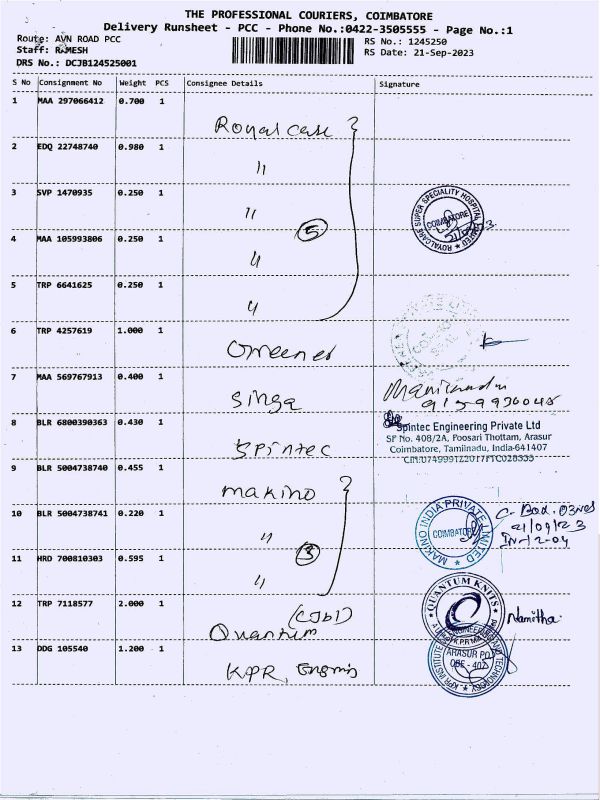 THE PROFESSIONAL COURIERS, COIMBATORE
Delivery Runsheet - PCC - Phone No.:0422-3505555 - Page No.:1
Route: AVN ROAD PCC
RS No.: 1245250
Staff: RAMESH
RS Date: 21-Sep-2023
DRS No.: DCJB124525001
S No Consignment No Weight PCS Consignee Details Signature
1 MAA 297066412 0.700 1
Royal care
2 EDQ 22748740 0.980 1
"
3 SVP 1470935 0.250 1
"
ROYALCARE SUPER SPECIALITY HOSPITAL LIMITED
COIMBATORE
5
4 MAA 105993806 0.250 1
"
5 TRP 6641625 0.250 1
"
6 TRP 4257619 1.000 1
7 MAA 569767913 0.400 1
Singa
8 BLR 6800390363 0.430 1
Spintec Engineering Private Ltd
SF No. 408/2A, Poosari Thottam, Arasur
Coimbatore, Tamilnadu, India-641407
Spintec
9 BLR 5004738740 0.455 1
makino
10 BLR 5004738741 0.220 1
"
MAKINO INDIA PRIVATE LIMITED
COIMBATORE
21/09/23
3
11 HRD 700810303 0.595 1
"
12 TRP 7118577 2.000 1
(CJb1)
Quantum
QUANTUM KNITS
Namitha
13 DDG 105540 1.200 1
KPR
ARASUR PO
KPR INSTITUTE
AND TECHNOLOGY